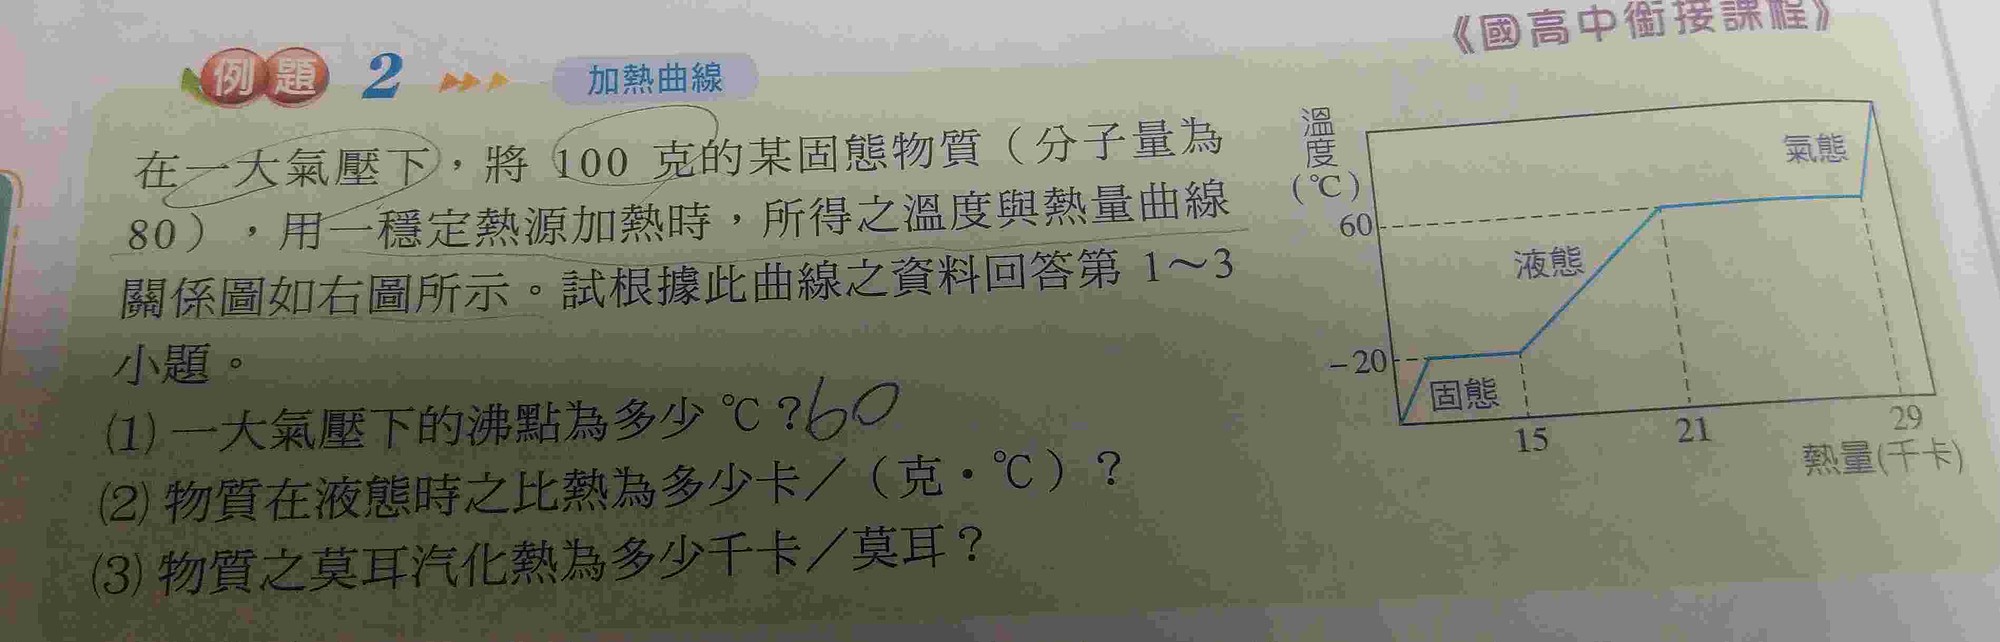 《國高中銜接課程》
例題 2 加熱曲線
在一大氣壓下，將 100 克的某固態物質（分子量為
80），用一穩定熱源加熱時，所得之溫度與熱量曲線
關係圖如右圖所示。試根據此曲線之資料回答第 1～3
小題。
(1) 一大氣壓下的沸點為多少 ℃？60
(2) 物質在液態時之比熱為多少卡／（克・℃）？
(3) 物質之莫耳汽化熱為多少千卡／莫耳？
溫度
(℃)
氣態
60
液態
-20
固態
15 21 29
熱量(千卡)